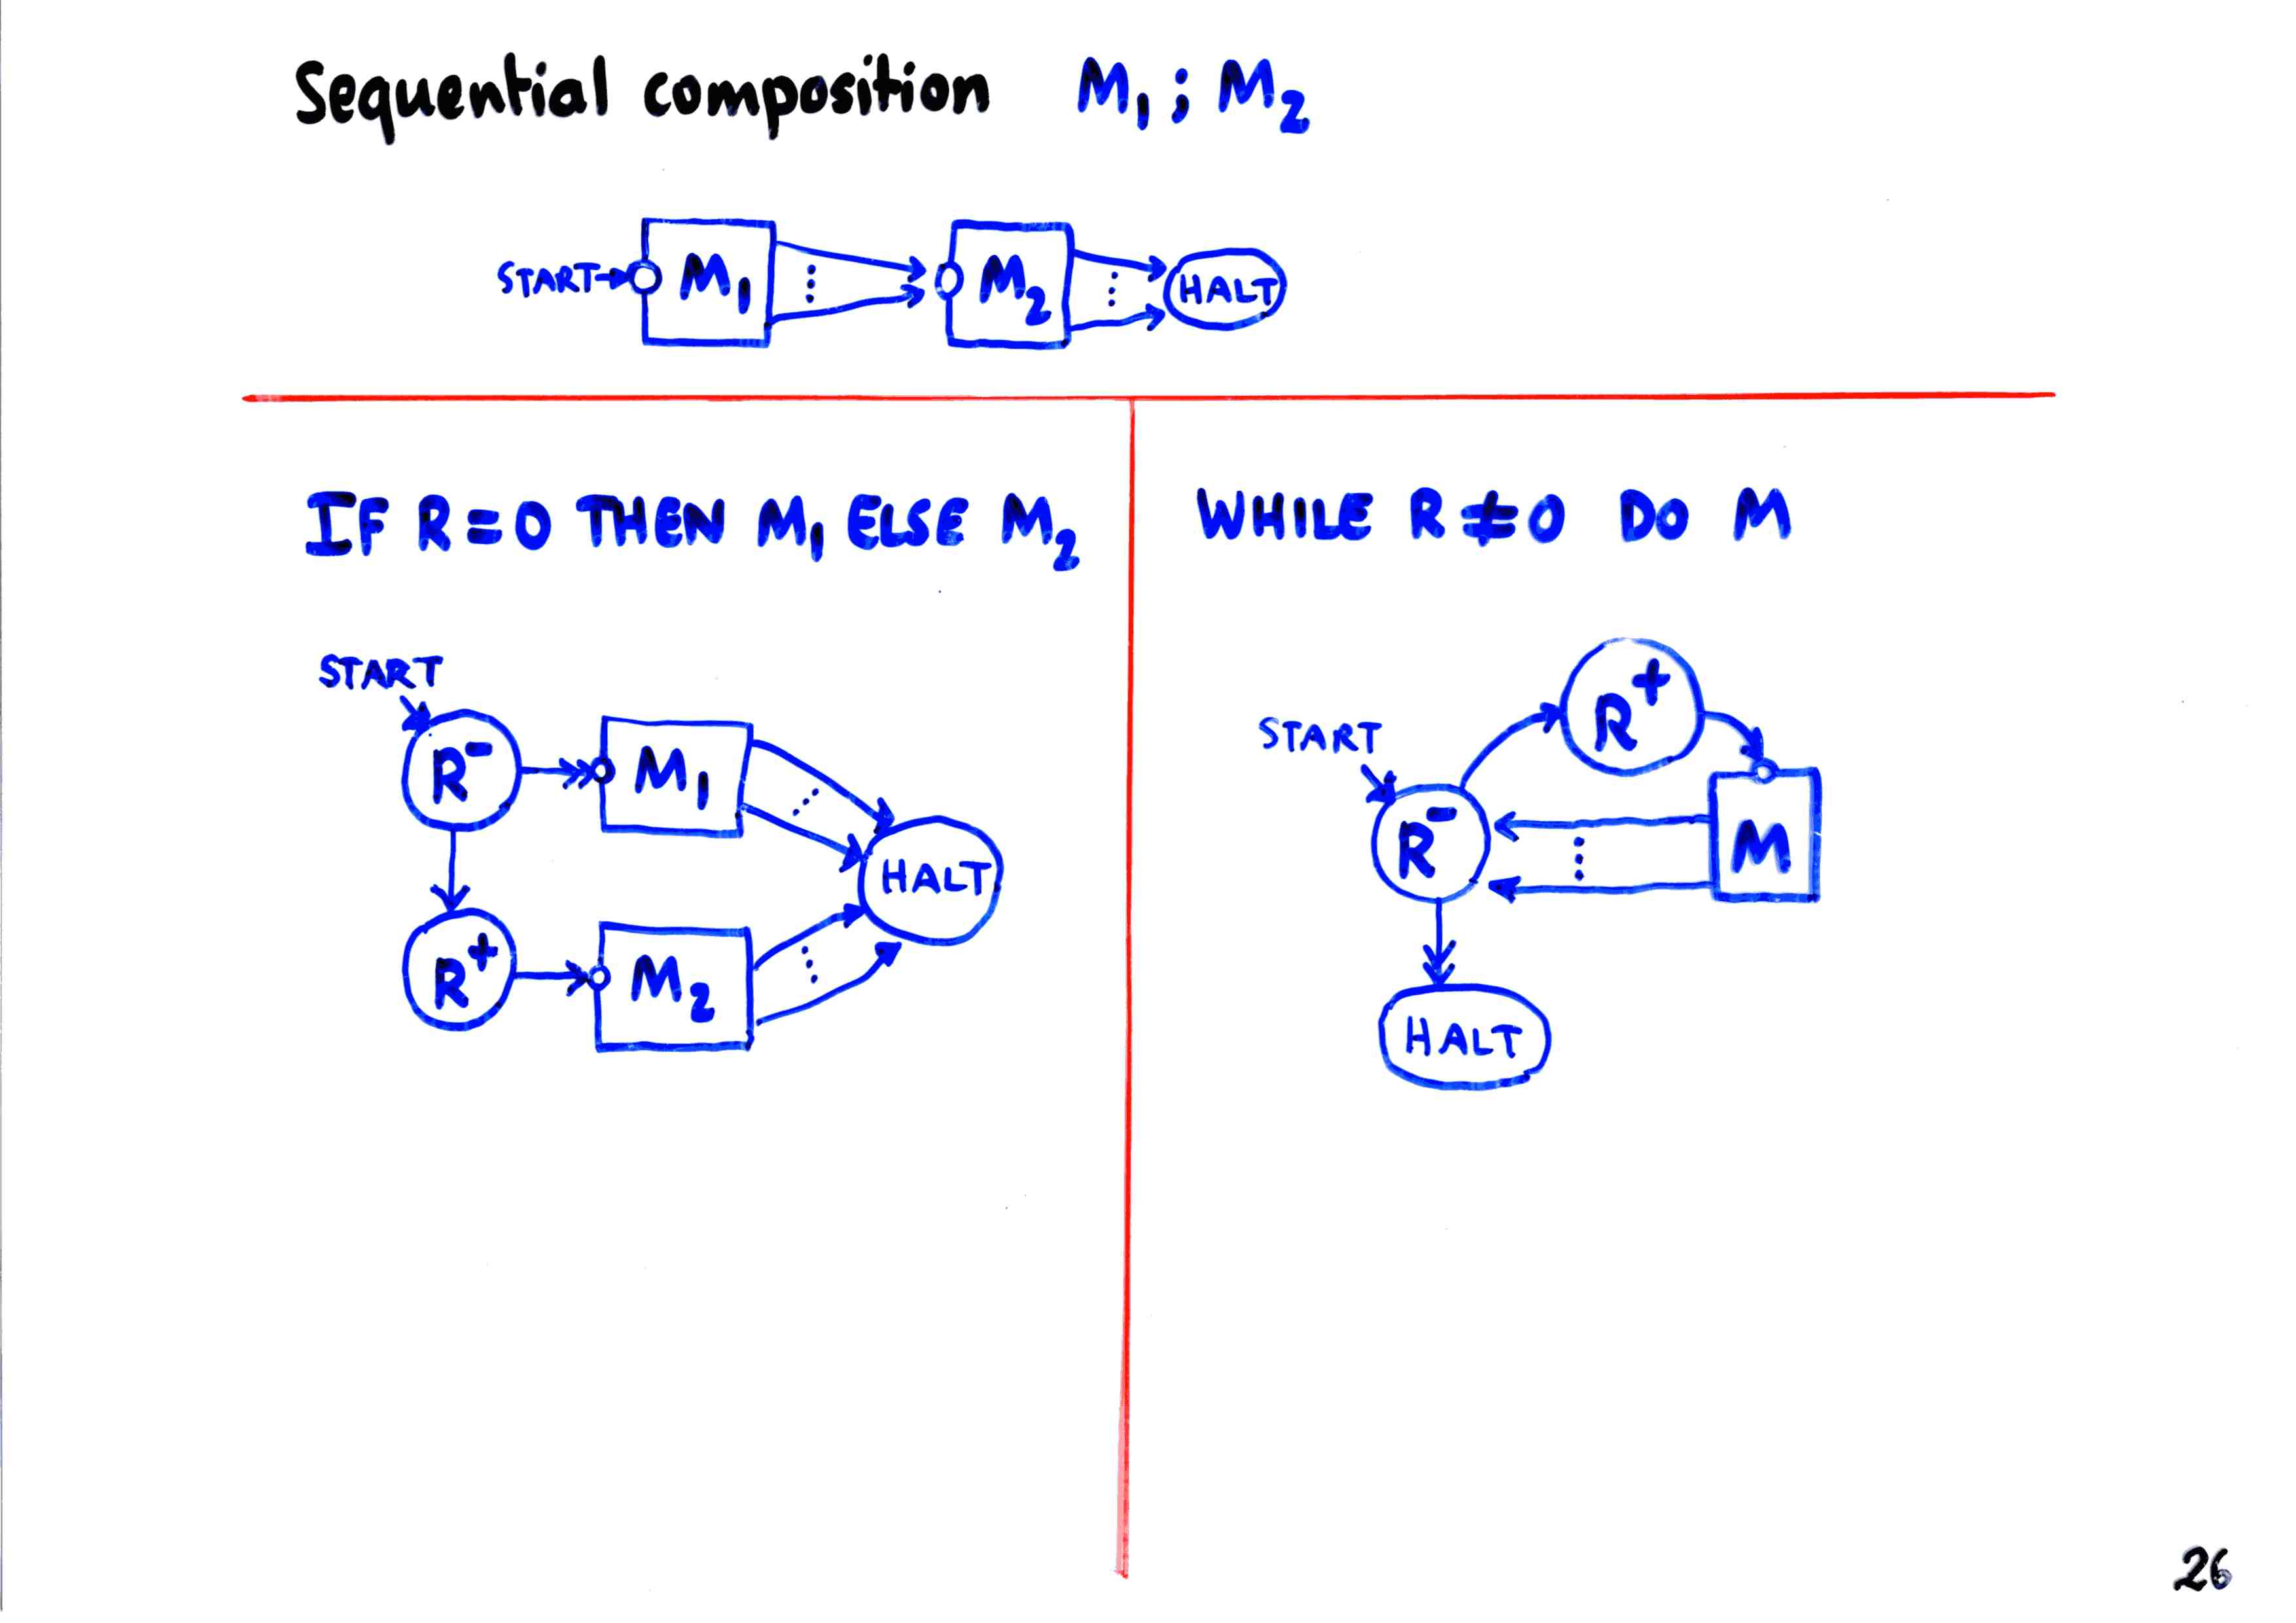 Sequential composition M₁ ; M₂
START M₁ ⋮ M₂ ⋮ HALT
IF R=0 THEN M₁ ELSE M₂
START
R⁻ M₁
HALT
R⁺ M₂
WHILE R≠0 DO M
R⁺
START
R⁻ M
HALT
26